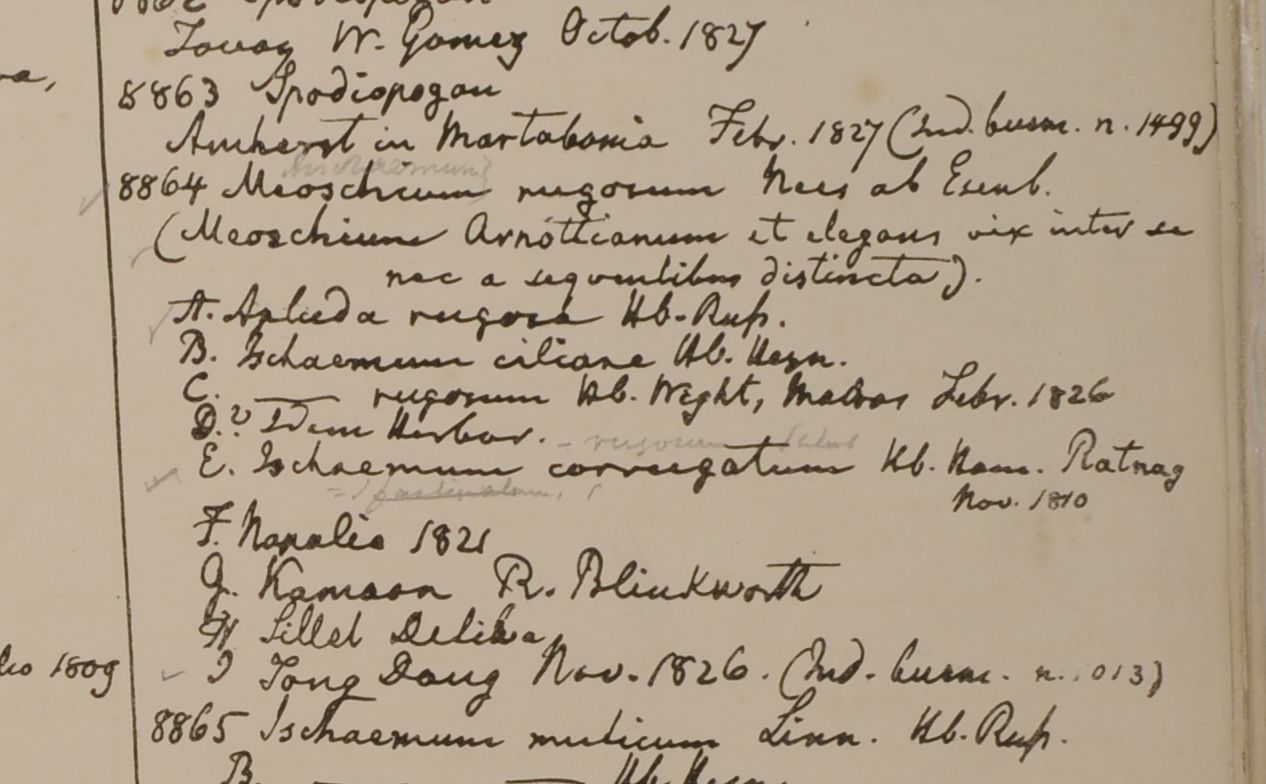 Tavoy W. Gomez Octob. 1827
va,
8863 Spodiopogon
Amherst in Martabania Febr. 1827 (Ind. burm. n. 1499)
Ischaemum
8864 Meoschium rugosum Nees ab Esenb.
(Meoschium Arnottianum et elegans vix inter se
nec a sequentibus distincta).
A. Apluda rugosa Hb. Rufs.
B. Ischaemum ciliare Hb. Heyn.
C. —— rugosum Hb. Wight, Madras Febr. 1826
D.? Idem Herbar.
- rugosum Salisb
E. Ischaemum corrugatum Hb. Ham. Ratnag
Nov. 1810
F. Napalia 1821
G. Kamaon R. Blinkworth
H Sillet Desilva
I Tong Dong Nov. 1826. (Ind. burm. n. 1013)
1809
8865 Ischaemum muticum Linn. Hb. Rufs.
B. —— —— Hb. Heyn.